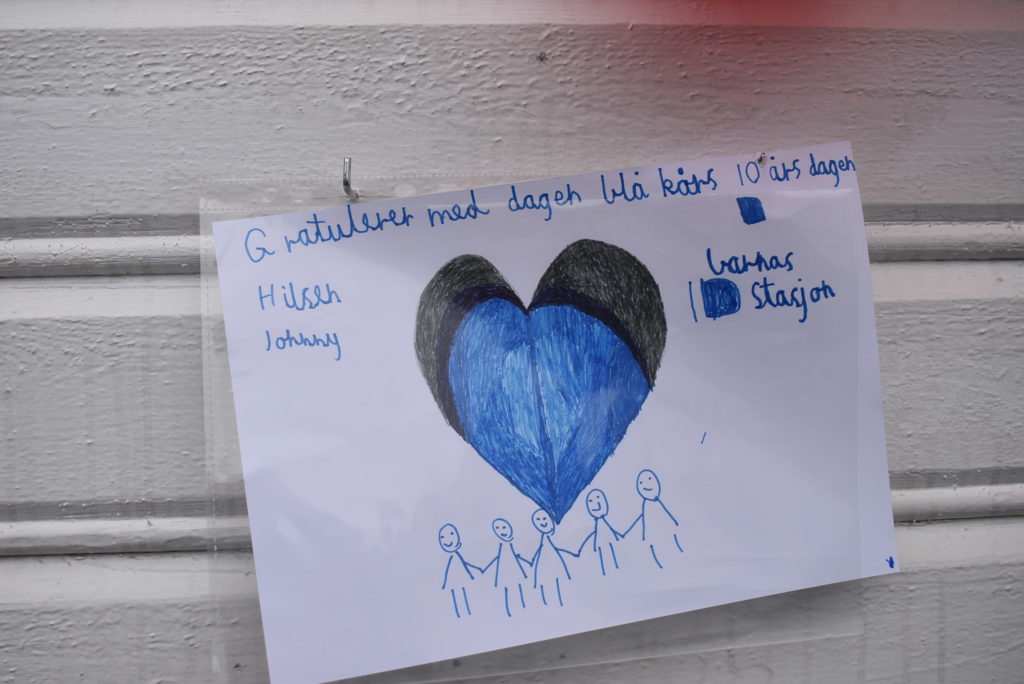 Gratulerer med dagen blå kårs 10 års dagen
Hilsen
Johnny
barnas
Stasjon